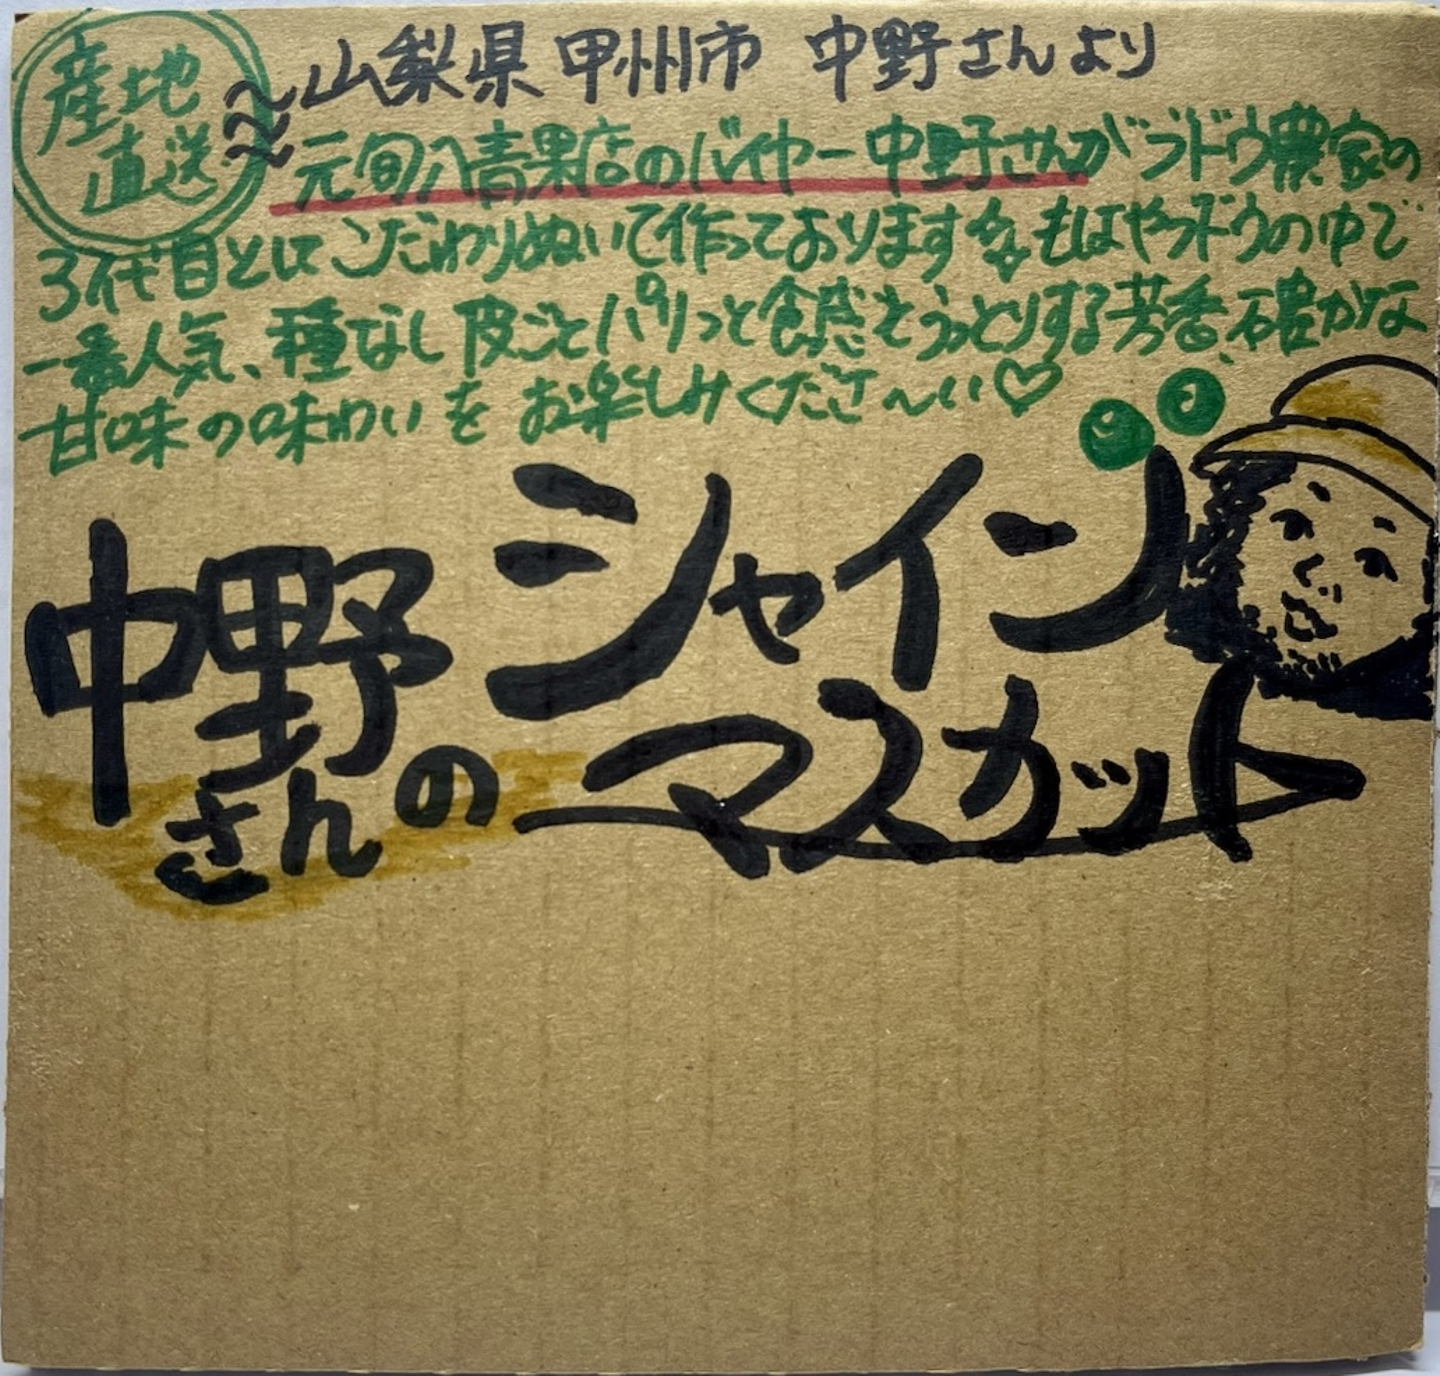 産地
直送
~山梨県 甲州市 中野さんより
元旬八青果店のバイヤー中野さんがブドウ農家の
3代目としてこだわりぬいて作っております もはやブドウの中で
一番人気、種なし 皮ごとパリっと食感をうっとりする芳香、豊かな
甘味の味わいを お楽しみくださ〜い♡
中野
さんの
シャイン
マスカット